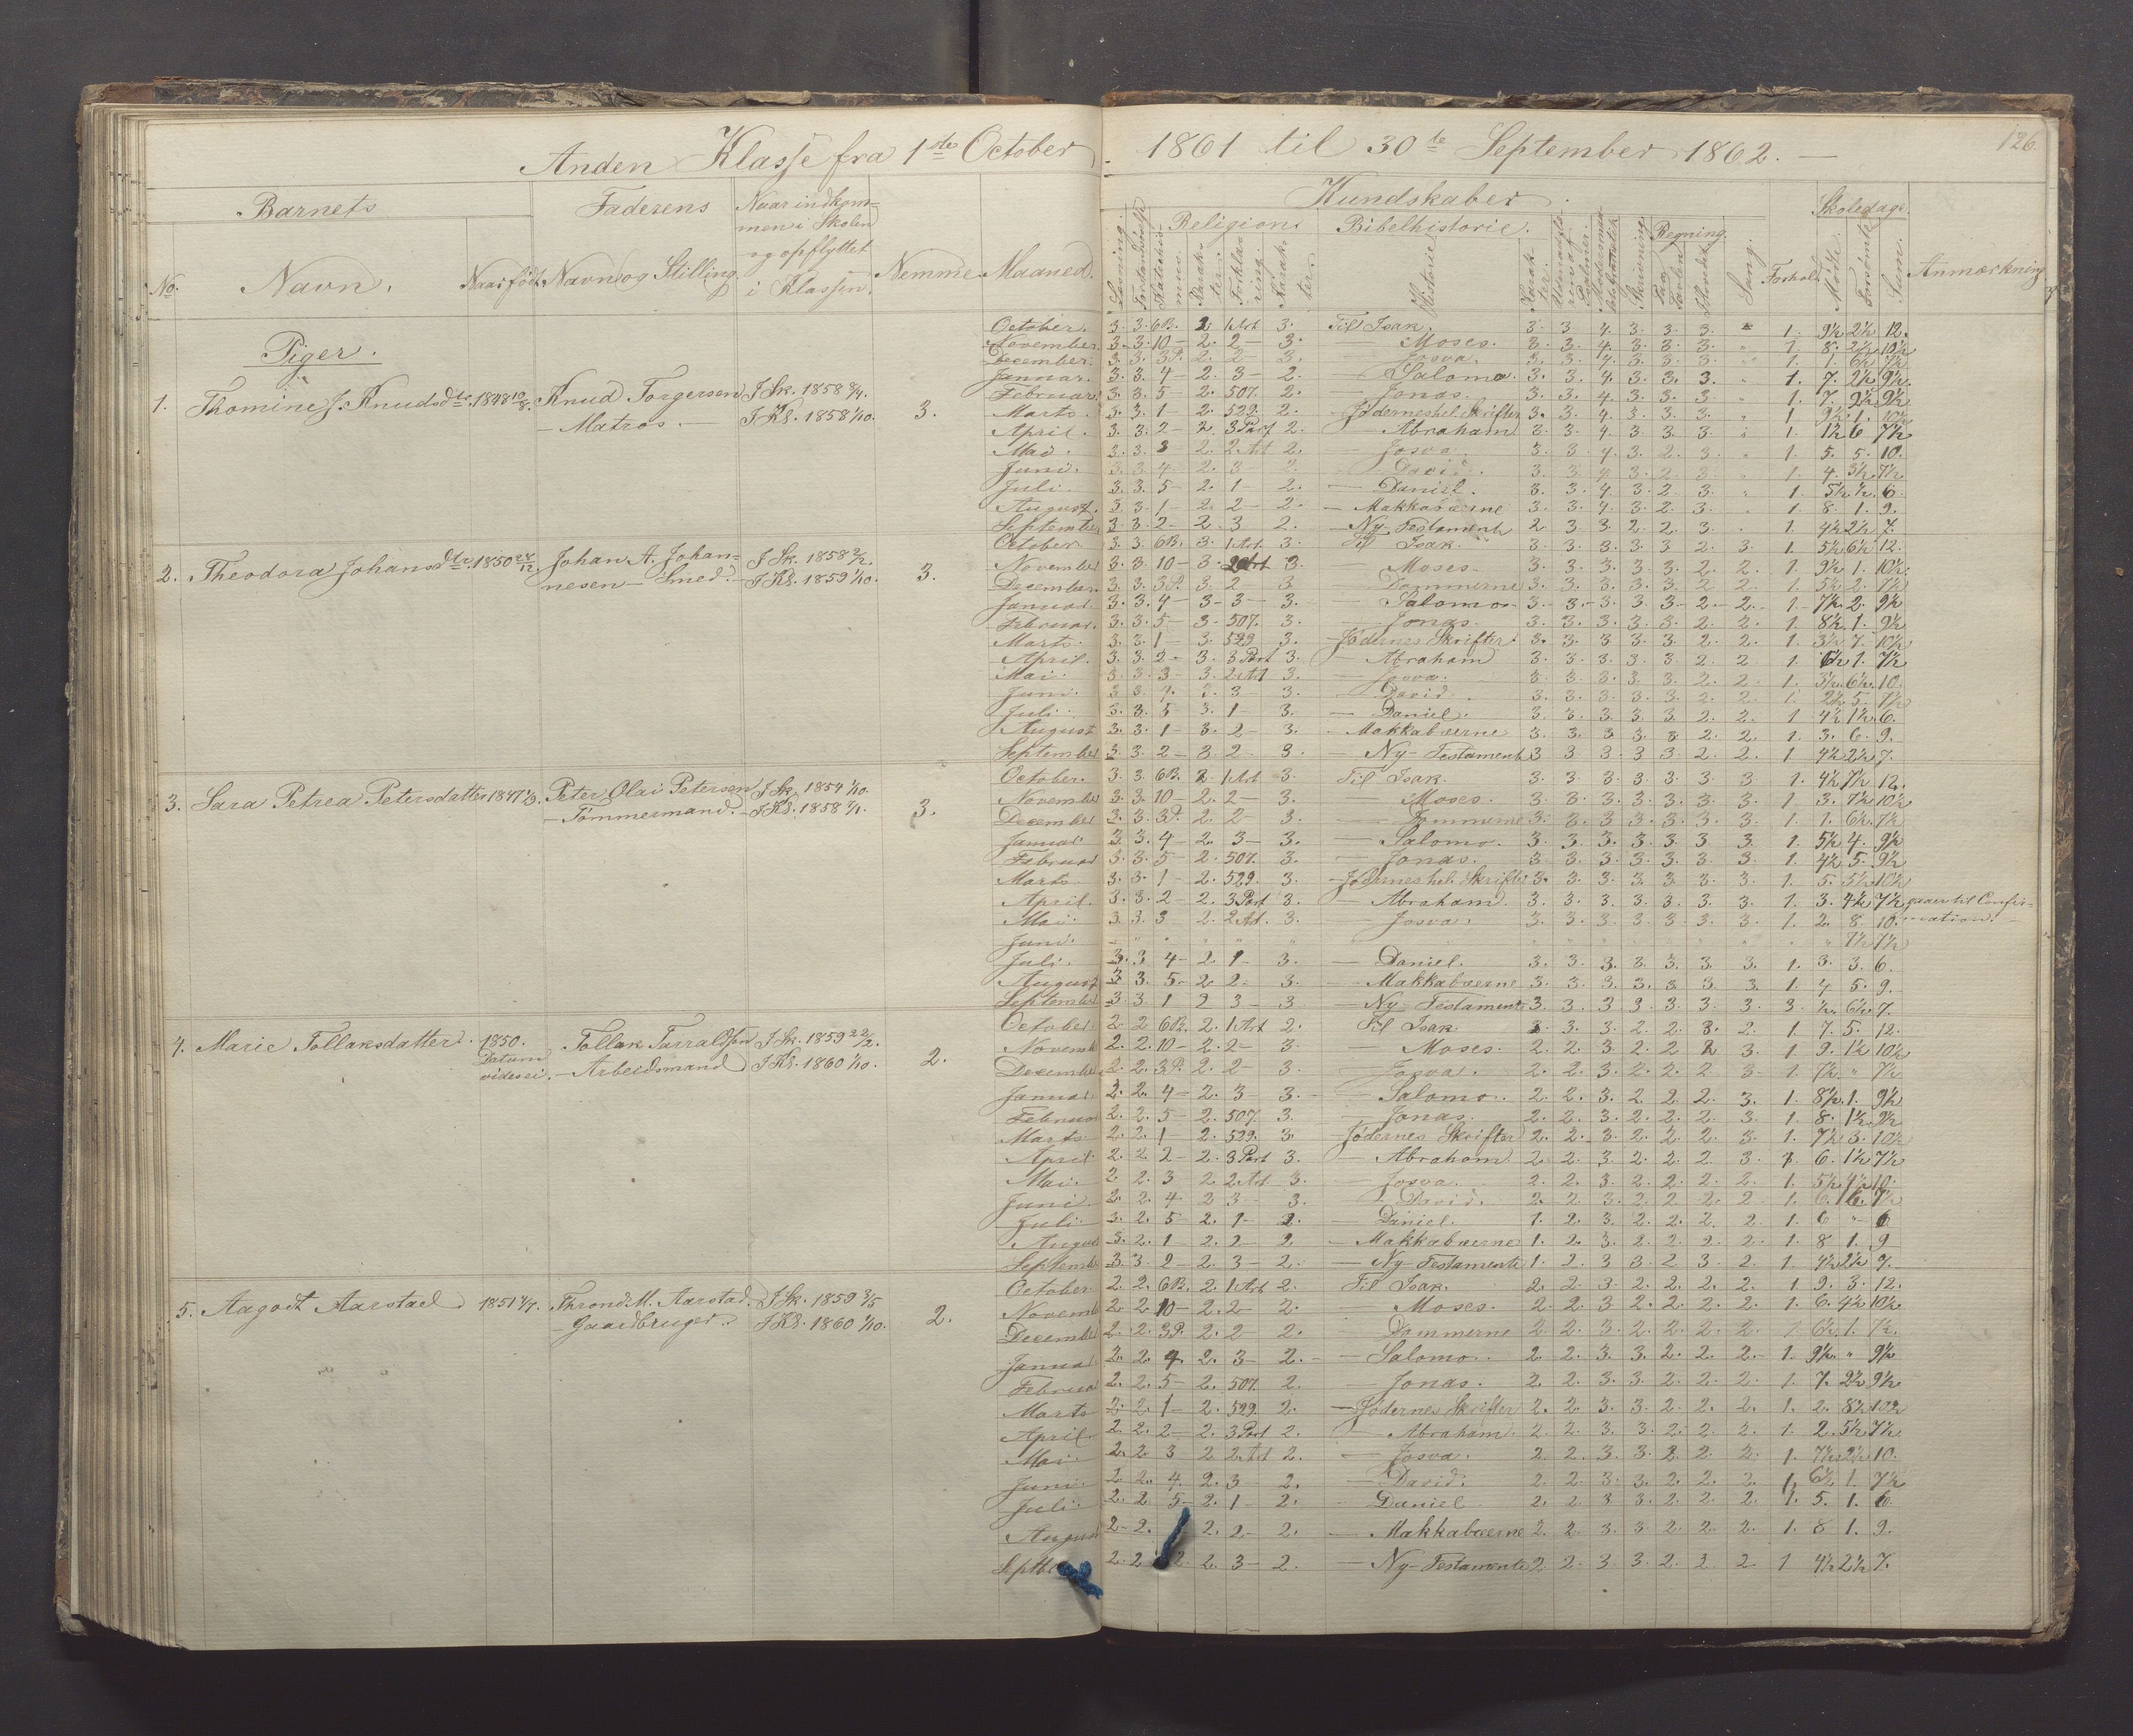 Anden Klasse fra 1ste October 1861 til 30te September 1862. —
126.
Barnets
Faderens
Naar indkom-
men i Skolen
og opflyttet
i Klassen.
No.
Navn.
Naar født.
Navn og Stilling.
Nemme.
Maaned.
Kundskaber.
Religion.
Bibelhistorie.
Regning.
Skoledage.
Læsning.
Karak-
ter.
Forkla-
ring.
Karak-
ter.
Historie
Karak-
ter.
Skrivning
Tavlen
Hovedet
Sang.
Forhold
Mødte.
Forsømte
Sum.
Anmærkning
Piger.
1. Thomine J. Knudsdtr. 1848 10/8. Knud Torgersen
— Matros. —
J Sk. 1858
J Kl. 1858 1/10.
3.
October. 3. 3. 6B. 2. 1 Art 3. Til Isak. 3. 3 4. 3. 3. 3. 1. 9½ 2½ 12.
November. 3. 3. 10 — 2. 2 — 3. — Moses. 3. 3. 4. 3. 3. 3. 1. 8. 2½ 10½
December. 3. 3. 3P. 2. 2 — 3. — Josva. 3. 3. 4. 3. 3. 3. 1. 1. 6½ 7½
Januar. 3. 3. 4 — 2. 3 — 2. — Salomo. 3. 3. 4. 3. 3. 3. 1. 7. 2½ 9½.
Februar. 3. 3. 5 — 2. 507. 2. — Jonas. 3. 3. 4. 3. 3. 3. 1. 7. 2½ 9½
Marts. 3. 3. 1 — 2. 529. 2. — Jødernes hel. Skrifter 3. 3. 4. 3. 3. 3. 1 9½ 1. 10½
April. 3. 3. 2 — 2. 3 Part 2. — Abraham 3. 3. 4. 3. 3. 3. 1. 1½ 6 7½
Mai. 3. 3. 3 2. 2 Art 2. — Josva. 3. 3. 4. 3. 2. 3. 1. 5. 5. 10.
Juni. 3. 3. 4 — 2. 3 — 2. — David. 3. 3. 4. 3. 2. 3. 1. 4. 3½ 7½
Juli. 3. 3. 5 — 2. 1 — 2. — Daniel. 3. 3. 4. 3. 2. 3. 1. 5½ ½. 6.
August. 3. 3. 1 — 2. 2 — 2. — Makkabæerne 3. 3. 4. 3. 2. 3. 1. 8. 1. 9.
September 3. 3. 2 — 2. 3 2. — Ny Testament 2 3 3 2. 2. 3. 1. 4½ 2½ 7.
2. Theodora Johansdtr. 1850 28/12. Johan A. Johan-
nesen — Smed. —
J Sk. 1858 2/2.
J Kl. 1859 1/10.
3.
October. 3. 3. 6B. 3. 1 Art. 3. Til Isak. 3. 3. 3. 3. 3 2. 3. 1. 5½ 6½ 12.
November 3. 3. 10 — 3. 2 Art 3. — Moses. 3. 3. 3. 3. 3. 2. 2. 1. 9½ 1. 10½.
December. 3. 3. 3P. 3 2 — 3 — Dommerne 3. 3. 3. 3. 3. 2 2. 1. 5½ 2. 7½
Januar. 3. 3. 4 — 3 — 3 — 3. — Salomo. 3. 3. 3. 3. 3. 2. 2. 1. 7½. 2. 9½
Februar. 3. 3. 5 — 3. 507. 3. — Jonas. 3. 3. 3. 3. 3. 2. 2. 1. 8½ 1. 9½
Marts. 3. 3. 1 — 3. 529 3. — Jødernes Skrifter. 3. 3. 3 3. 3. 2. 2. 1. 3½ 7. 10½
April. 3. 3. 2 — 3. 3 Part 3. — Abraham 3. 3. 3. 3. 3. 2. 2. 1. 6½ 1. 7½
Mai. 3. 3. 3 — 3. 2 Art 3. — Josva. 3. 3. 3. 3. 3. 2. 2. 1. 3½ 6½ 10.
Juni. 3. 3. 4. 3. 3 — 3. — David. 3. 3. 3. 3. 3. 2. 2. 1. 2½ 5. 7½
Juli. 3. 3. 5 — 3. 1 — 3. — Daniel. 3. 3. 3. 3. 3. 2. 2. 1. 4½ 1½. 6.
August 3. 3. 1 — 3. 2 — 3. — Makkabæerne 3. 3. 3 3. 3. 2. 2. 1. 3. 6. 9.
September 3. 3. 2 — 3 2 — 3. — Ny Testament 3 3 3 3. 3 2. 2 1 4½ 2½ 7.
3. Sara Petrea Petersdatter 1847 1/3. Peter Olai Petersen
— Tømmermand. —
J Sk. 1854 1/10.
J Kl. 1858
3.
October. 3. 3. 6B. 2. 1 Art 3. Til Isak. 3. 3 3. 3. 3. 3. 3 1. 4½ 7½ 12.
November 3. 3. 10 — 2. 2 — 3. — Moses. 3. 3. 3. 3. 3. 3. 3. 1. 3. 7½ 10½
December 3. 3. 3P. 2. 2 — 3. — Dommerne 3. 3. 3. 3. 3. 3. 3. 1. 1. 6½. 7½
Januar 3. 3 4 — 2. 3 — 3. — Salomo. 3. 3. 3. 3. 3. 3 3. 1. 5½ 4. 9½
Februar 3. 3. 5 — 2. 507. 3. — Jonas. 3 3. 3. 3. 3. 3. 3. 1. 4½ 5. 9½
Marts. 3. 3. 1 — 2. 529. 3. — Jødernes hel. Skrifter 3. 3. 3. 3. 3. 3. 3. 1. 5. 5½ 10½
April. 3. 3. 2 — 2. 3 Part 3. — Abraham. 3. 3. 3. 3. 3. 3. 3. 1. 3. 4½ 7½ gaaer til Confir-
Mai. 3. 3. 3 2. 2 Art. 3. — Josva. 3. 3. 3. 3. 3. 3. 3. 1. 2. 8. 10. mation. —
Juni. " " " " " " " " " " " " " " " 7½ 7½
Juli. 3. 3 4 — 2. 1 — 3. — Daniel. 3. 3. 3. 3. 3. 3. 3. 1. 3. 3. 6.
August 3 3. 5 — 2. 2 — 3. — Makkabæerne 3. 3. 3. 3. 3. 3. 3. 1. 4 5. 9.
September 3 3 1 2 3 — 3 — Ny Testamente 3. 3. 3 3. 3. 3. 3. 3 ½. 6½ 7.
4. Marie Tollaksdatter. 1850.
Datum
vides ei.
Tollak Tarraldsen
— Arbeidsmand
J Sk. 1859 22/2.
J Kl. 1860 1/10.
2.
October 2 2 6B. 2. 1 Art 2. Til Isak. 3 3. 3. 2. 2. 3. 2. 1 7. 5. 12.
Novemb 2. 2. 10 — 2. 2 — 3. — Moses. 2. 2. 3. 2. 2 2 3. 1 9. 1½ 10½
December 2. 2. 3P. 2. 2 — 3. — Josva. 2. 2. 3. 2. 2. 2 3. 1. 7½ " 7½
Januar 2. 2. 4 — 2. 3 — 3. — Salomo. 2. 2. 3. 2 2. 2. 3. 1. 8½. 1. 9½
Februar 2. 2. 5 — 2. 507. 3. — Jonas. 2. 2. 3. 2. 2. 2. 3. 1. 8. 1½. 9½
Marts 2. 2. 1 — 2. 529. 3. — Jødernes Skrifter 2. 2. 3. 2. 2. 2. 3. 1. 7½ 3. 10½
April 2. 2. 2 — 2. 3 Part 3. — Abraham. 2 2. 3. 2. 2. 2. 3. 1. 6. 1½ 7½
Mai. 2. 2. 3 2. 2 Art 3. — Josva. 2. 2. 3. 2. 2. 2. 2. 1. 5½ 4½ 10.
Juni. 2. 2. 4 2 3 — 3. — David. 2. 2 3. 2. 2. 2. 2 1. 6. 7½
Juli. 3. 2. 5 — 2. 1 — 2. — Daniel. 1. 2. 3. 2. 2. 2. 2. 1. 6 " 6
August 3. 2. 1 — 2. 2 — 2. — Makkabæerne 1. 2. 3. 2. 2. 2. 2. 1. 8 1. 9
Septemb 3 3 2 — 2. 3 — 2. — Ny Testamente 1. 2. 3 3. 2. 3 2. 1. 4½ 2½ 7.
5. Aagodt Aarstad 1851 Thrond M. Aarstad.
— Gaardbruger.
J Sk. 1859 3/5
J Kl. 1860 1/10.
2.
October 2. 2. 6B. 2. 1 Art 2. Til Isak. 2. 2. 3. 2. 2. 2. 2. 1 9. 3. 12.
Novemb 2 2 10 — 2. 2 — 2. Moses. 2. 2. 3 2. 2. 2. 2. 1. 6. 4½ 10½.
Decemb 2 2. 3P. 2. 2 — 2. — Dommerne 2. 2. 3. 2. 2. 2. 2. 1. 6½. 1. 7½.
Januar 2. 2 4. 2. 3 — 2. — Salomo. 2 2. 3. 3. 2. 2. 2. 1. 9½. " 9½
Februar 2. 2. 5 — 2. 507. 2. — Jonas. 2. 2. 3. 3. 2. 2. 2. 1. 7. 2½ 9½.
Marts 2. 2. 1 — 2. 529. 2. — Jødernes Skrifter 2. 2. 3. 3. 2. 2. 2. 1. 2. 8½ 10½
April 2. 2. 2 — 2. 3 Part 2. — Abraham. 2. 2. 3. 3. 2. 2. 2. 1. 2. 5½ 7½.
Mai 2. 2. 3 2 2 Art 2. — Josva. 2. 2. 3. 3. 2 2. 2. 1. 7½ 2½ 10.
Juni. 2 2. 4. 2. 3 — 2. — David. 2. 2 3. 3. 2. 2. 2. 1. 6½ 1. 7½
Juli. 2. 2 5 — 2. 1 — 2. — Daniel 2. 2. 3 3. 2. 2. 2. 1. 5. 1. 6.
August 2 — 2. 2. 2 — 2. — Makkabæerne 2. 2. 3. 3. 2. 2. 2. 1. 8 1. 9.
Septb 2. 2 2 2. 3 — 2. — Ny Testamente 2 2. 3 3. 2. 3. 2 1 4½ 2½ 7.